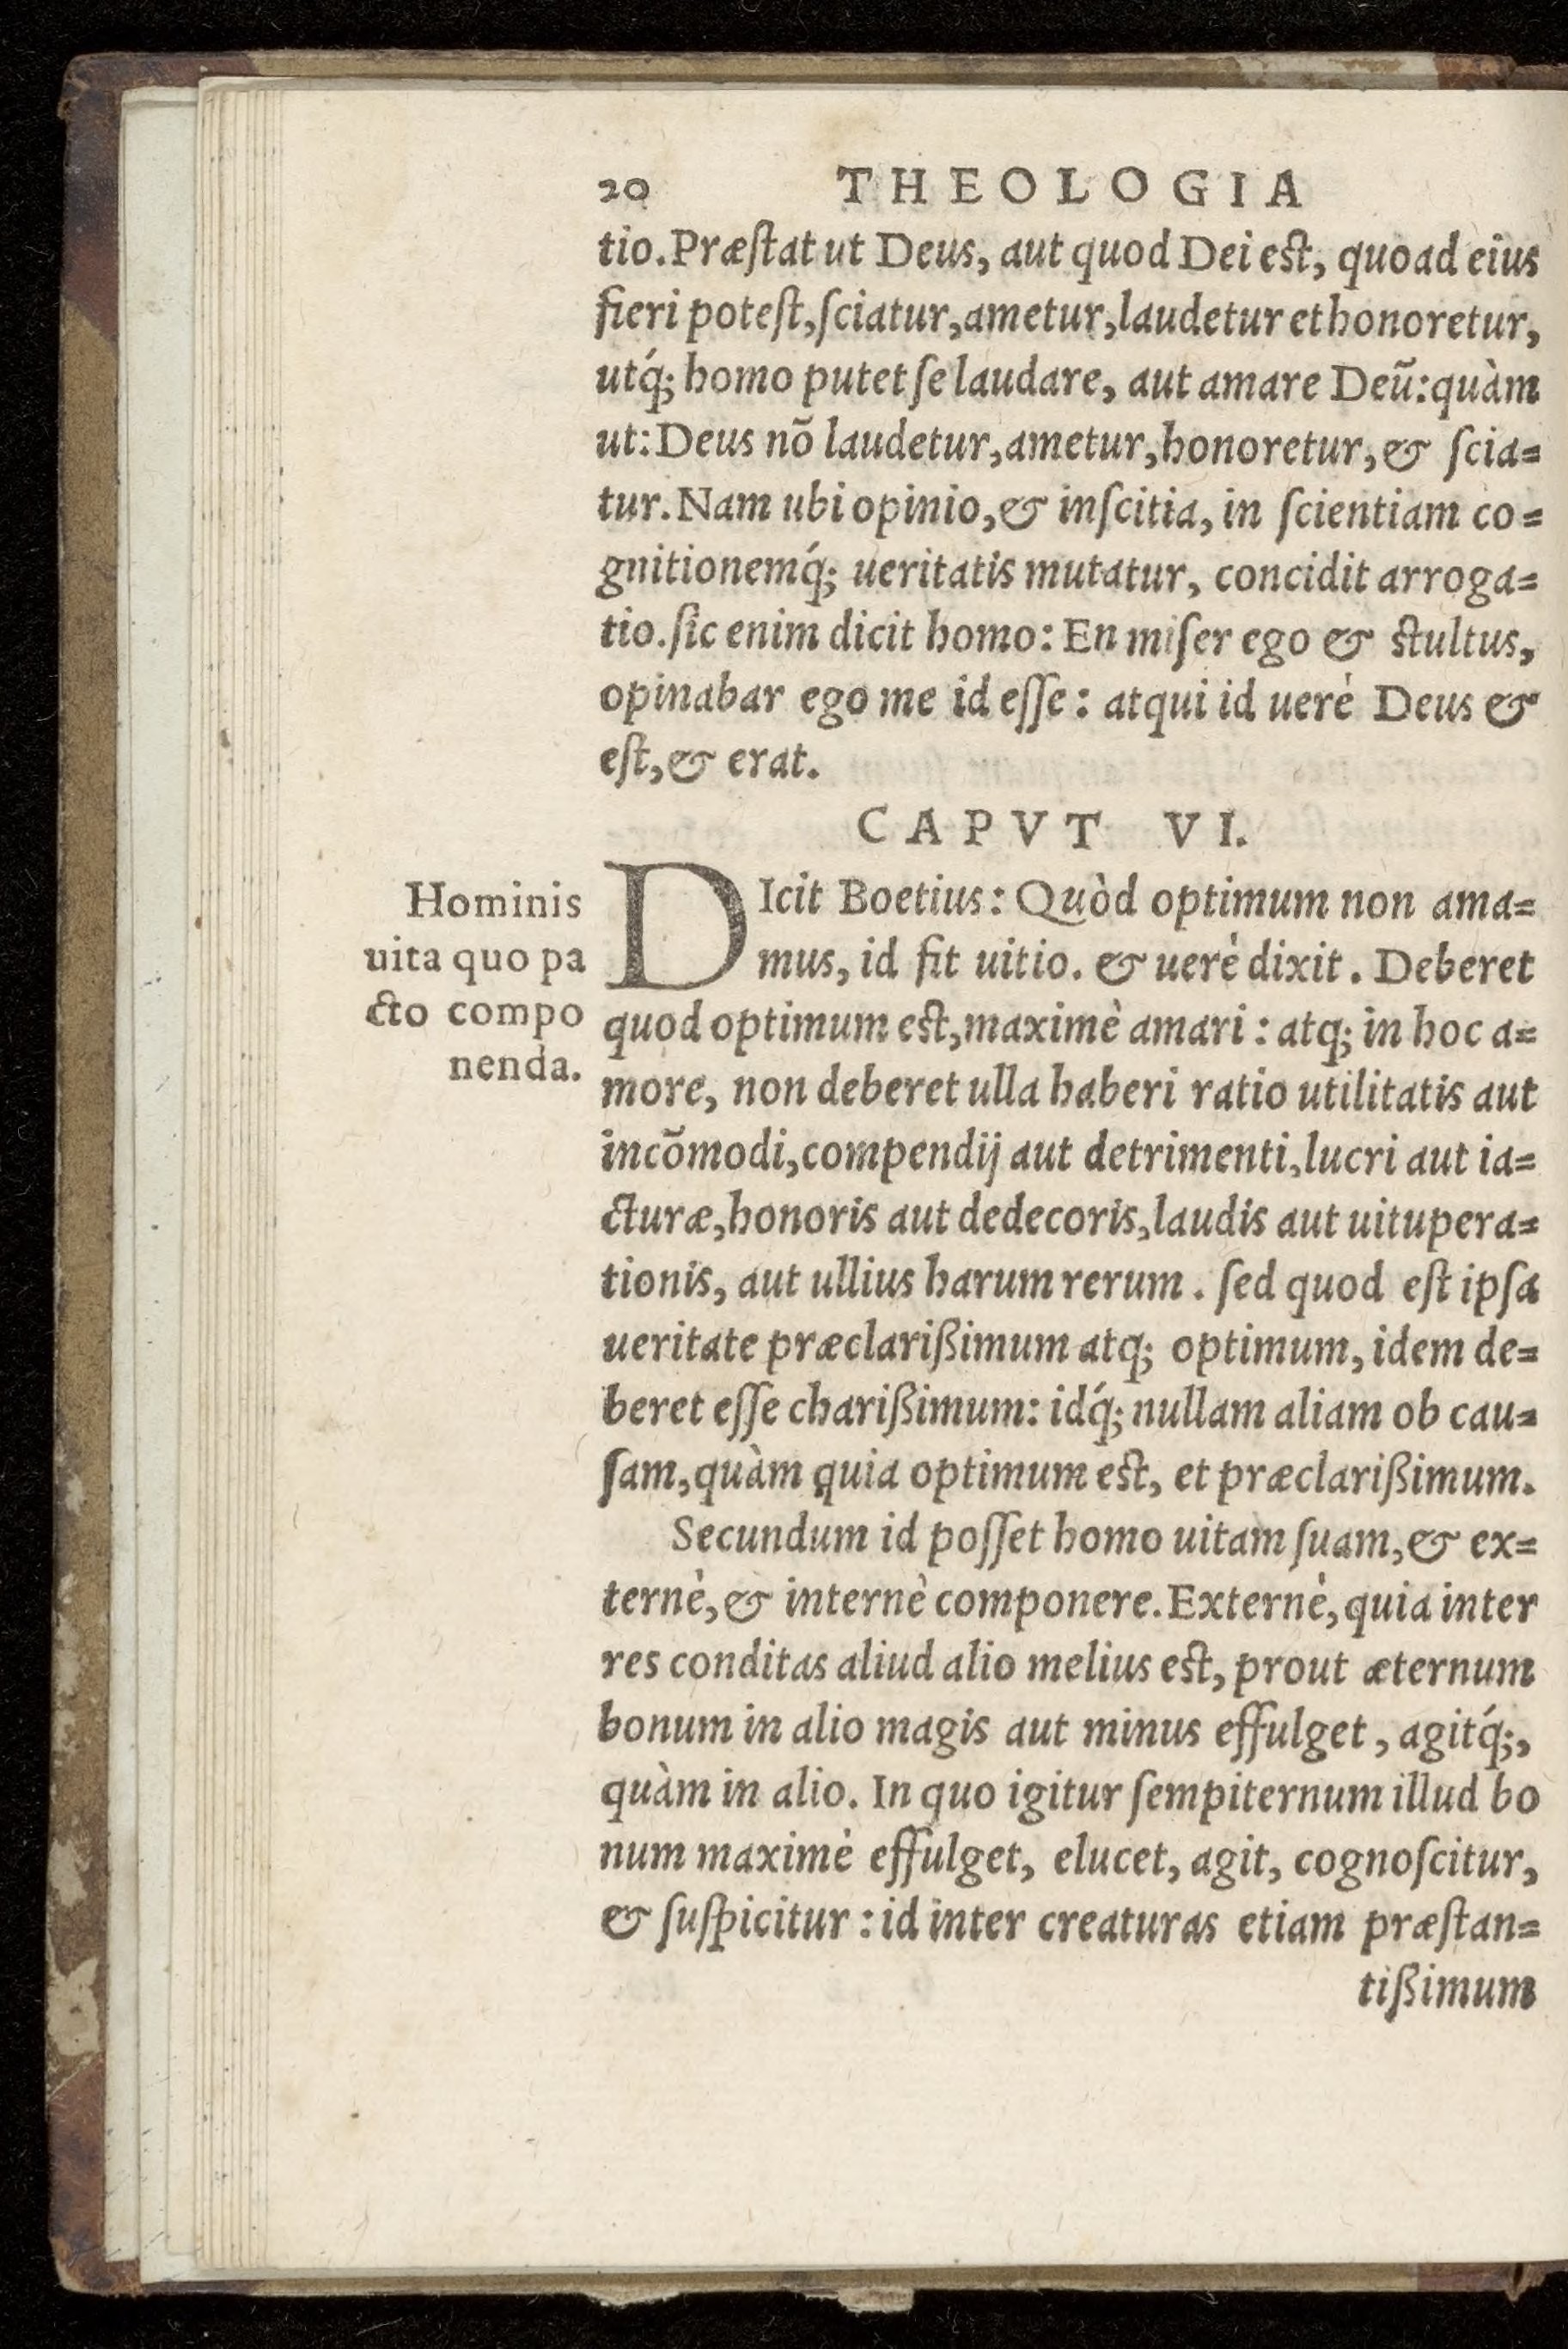 20 THEOLOGIA
tio. Præſtat ut Deus, aut quod Dei eſt, quoad eius
fieri poteſt, ſciatur, ametur, laudetur et honoretur,
utq́; homo putet ſe laudare, aut amare Deũ: quàm
ut: Deus nõ laudetur, ametur, honoretur, & ſcia=
tur. Nam ubi opinio, & inſcitia, in ſcientiam co=
gnitionemq́; ueritatis mutatur, concidit arroga=
tio. ſic enim dicit homo: En miſer ego & ſtultus,
opinabar ego me id eſſe: atqui id uerè Deus &
eſt, & erat.
CAPVT VI.
Hominis
uita quo pa
cto compo
nenda.
DIcit Boetius: Quòd optimum non ama=
mus, id fit uitio. & uerè dixit. Deberet
quod optimum eſt, maximè amari: atq; in hoc a=
more, non deberet ulla haberi ratio utilitatis aut
incõmodi, compendij aut detrimenti, lucri aut ia=
cturæ, honoris aut dedecoris, laudis aut uitupera=
tionis, aut ullius harum rerum. ſed quod eſt ipſa
ueritate præclarißimum atq; optimum, idem de=
beret eſſe charißimum: idq́; nullam aliam ob cau=
ſam, quàm quia optimum eſt, et præclarißimum.
Secundum id poſſet homo uitam ſuam, & ex=
ternè, & internè componere. Externè, quia inter
res conditas aliud alio melius eſt, prout æternum
bonum in alio magis aut minus effulget, agitq́;,
quàm in alio. In quo igitur ſempiternum illud bo
num maximè effulget, elucet, agit, cognoſcitur,
& ſuſpicitur: id inter creaturas etiam præſtan=
tißimum